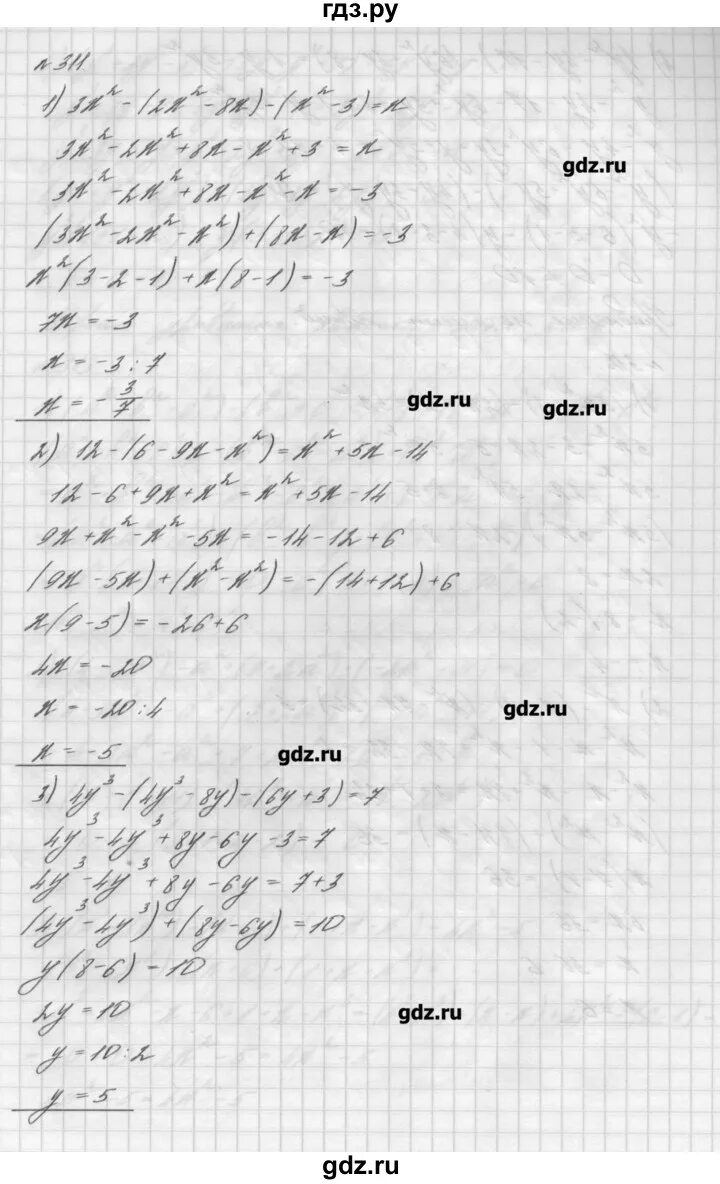 гдз.ру
n 311
1) 3x² - (2x² - 8x) - (x² - 3) = x
3x² - 2x² + 8x - x² + 3 = x
gdz.ru
3x² - 2x² + 8x - x² - x = -3
(3x² - 2x² - x²) + (8x - x) = -3
x²(3 - 2 - 1) + x(8 - 1) = -3
7x = -3
x = -3 : 7
x = -3/7
gdz.ru
gdz.ru
2) 12 - (6 - 9x - x²) = x² + 5x - 14
12 - 6 + 9x + x² = x² + 5x - 14
9x + x² - x² - 5x = -14 - 12 + 6
(9x - 5x) + (x² - x²) = -(14 + 12) + 6
x(9 - 5) = -26 + 6
4x = -20
x = -20 : 4
gdz.ru
x = -5
gdz.ru
3) 4y³ - (4y³ - 8y) - (6y + 3) = 7
4y³ - 4y³ + 8y - 6y - 3 = 7
4y³ - 4y³ + 8y - 6y = 7 + 3
(4y³ - 4y³) + (8y - 6y) = 10
y(8 - 6) - 10
2y = 10
gdz.ru
y = 10 : 2
y = 5
gdz.ru